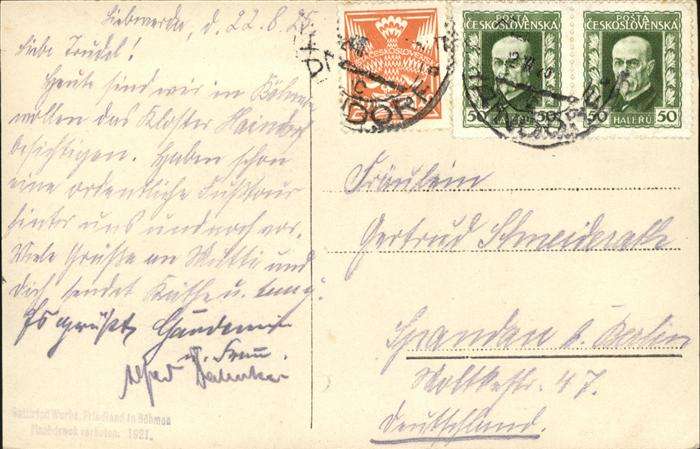 Liebwerda, d. 22.8.25
Liebe Trudel!
Heute sind wir in Böhmen
wollen das Kloster Haindorf
besichtigen. Haben schon
eine ordentliche Fußtour
hinter uns und noch vor.
Viele Grüße an Mutti und
Dich sendet Käthe u.
Es grüßt
u. Frau.
Alfred
POŠTA
ČESKOSLOVENSKÁ
50 HALÉŘŮ 50
POŠTA
ČESKOSLOVENSKÁ
50 HALÉŘŮ 50
Fräulein
Gertrud
Spandau b. Berlin
Moltkestr. 47.
Deutschland.
Werbs, Friedland in Böhmen
Nachdruck verboten. 1921.